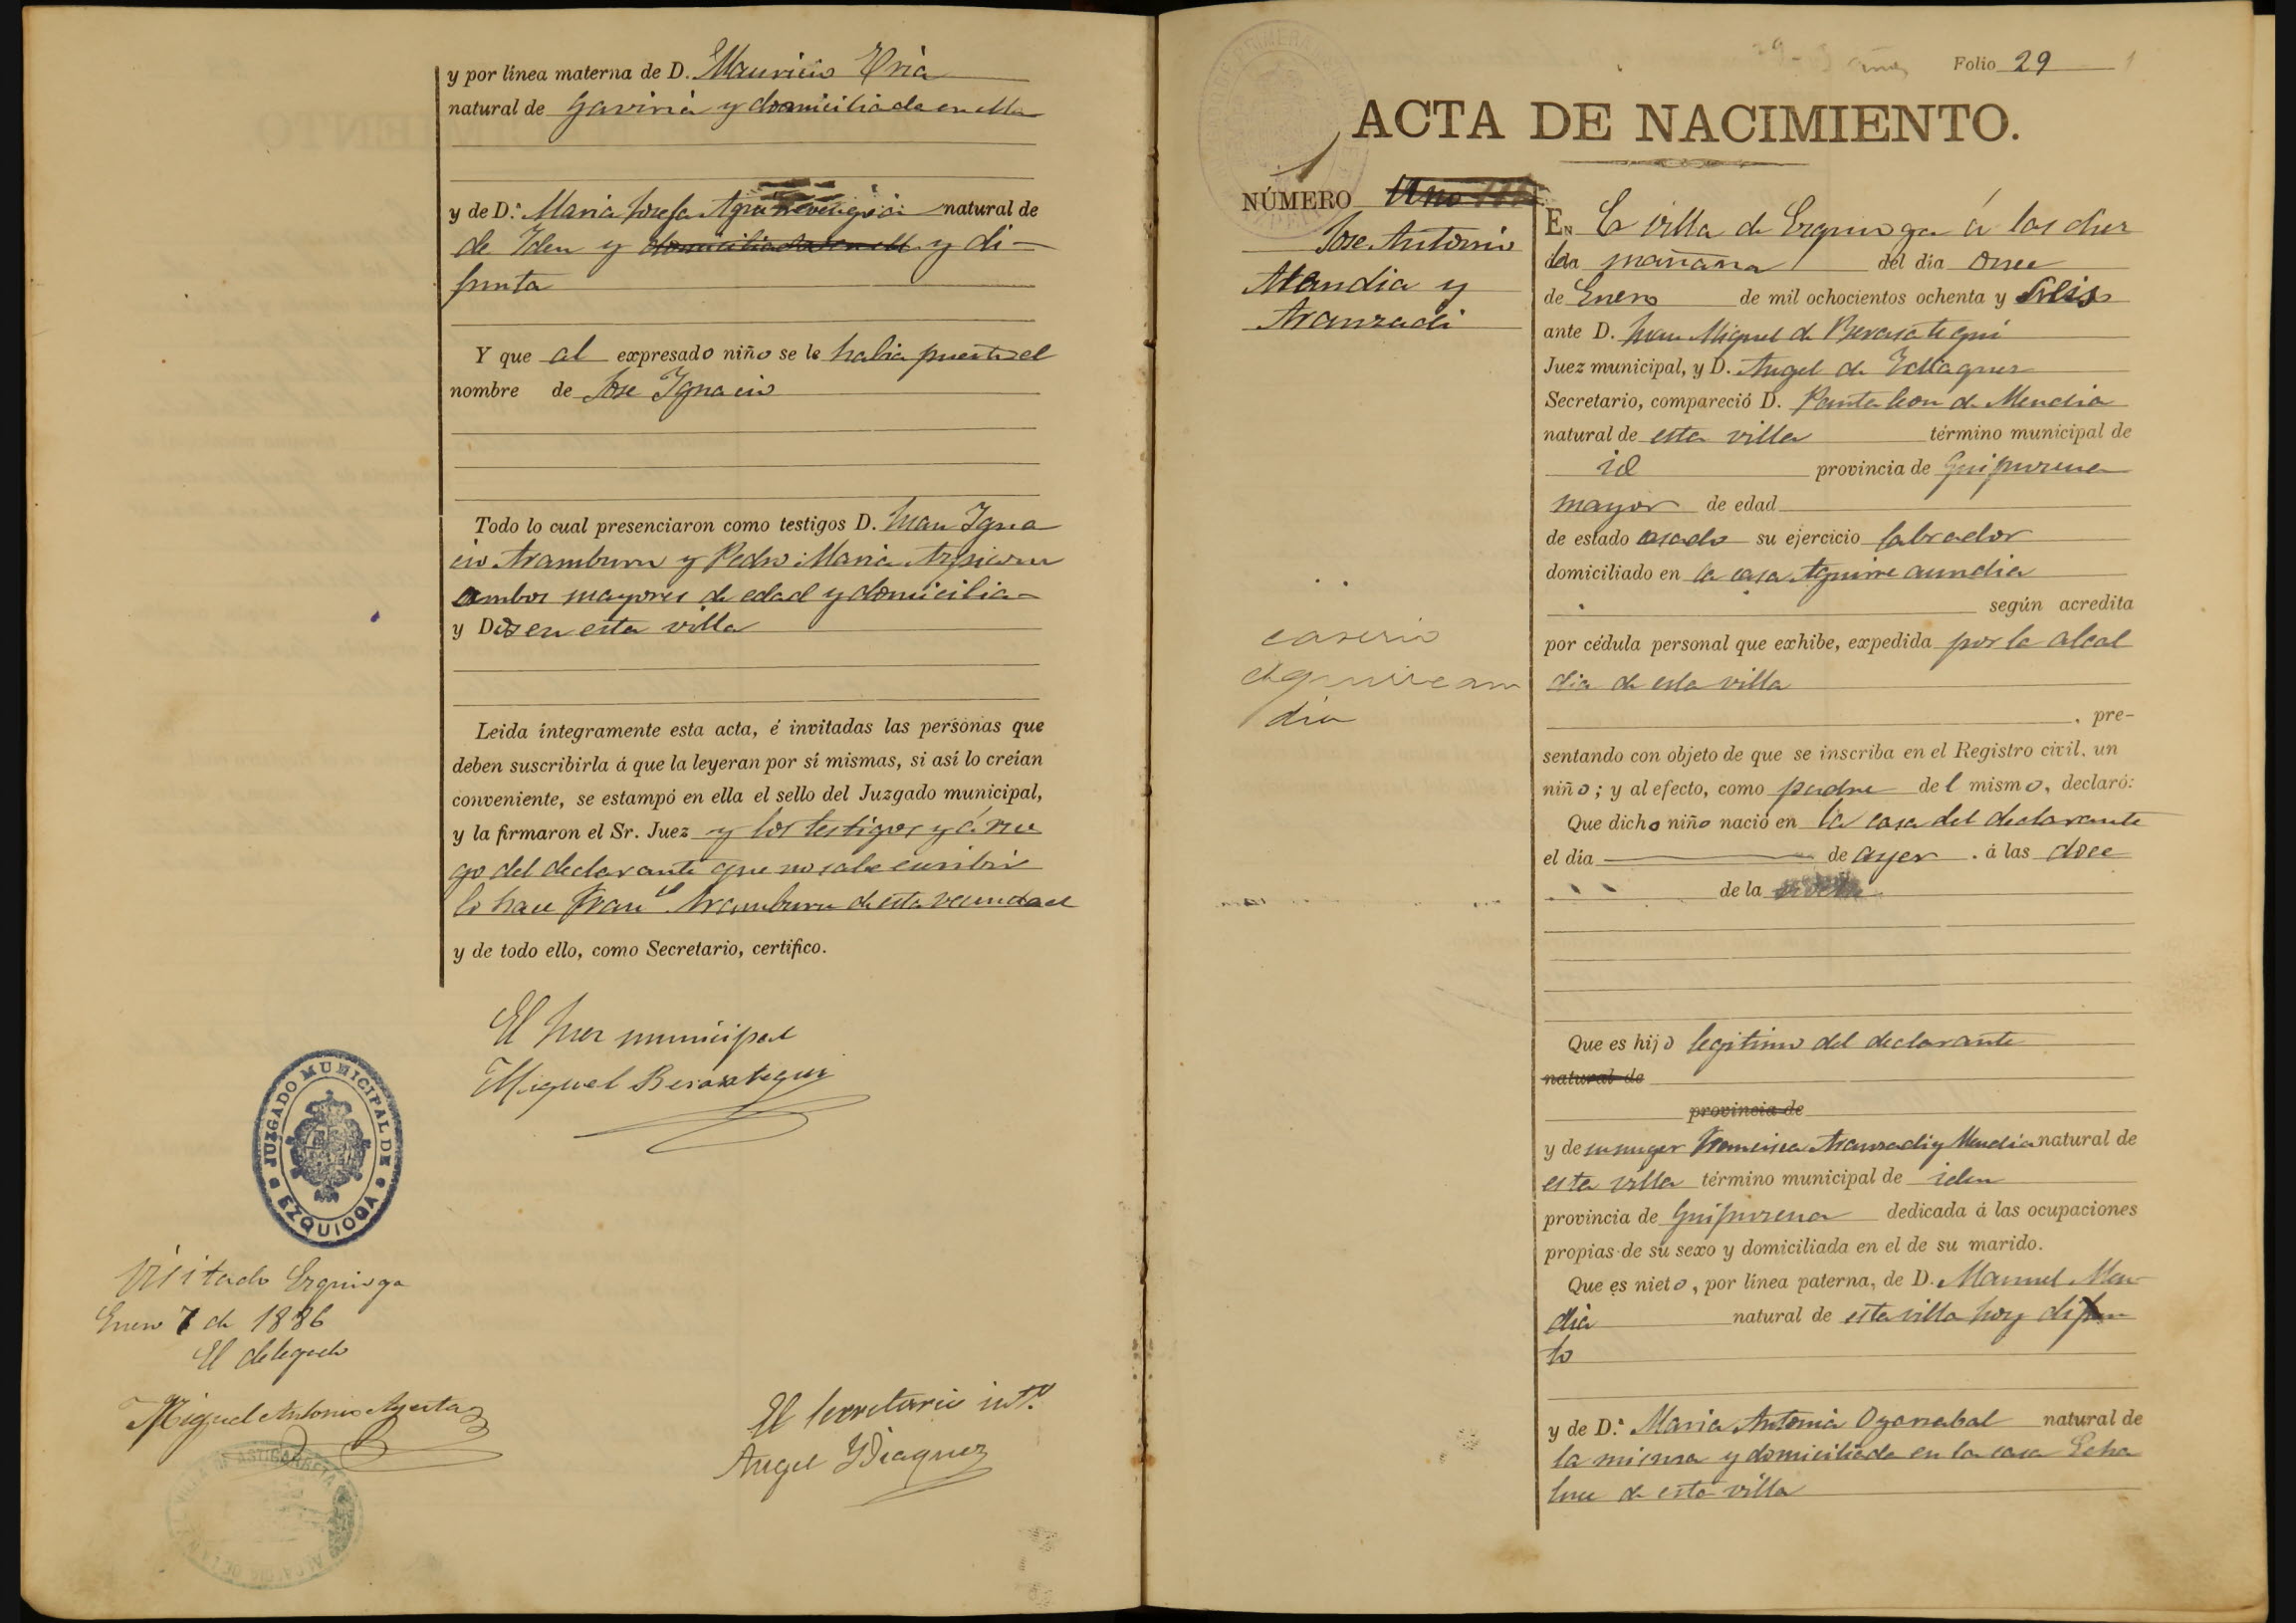 y por línea materna de D. Mauricio Oria
natural de Gaviria y domiciliado en ella
y de D.ª Maria Josefa natural de
de Iden y domiciliada en ella y di-
funta
Y que al expresado niño se le habia puesto el
nombre de Jose Ignacio
Todo lo cual presenciaron como testigos D. Juan Igna
cio Aramburu y Pedro Maria Azpiazu
ambos mayores de edad y domicilia-
y Dos en esta villa
Leida íntegramente esta acta, é invitadas las personas que
deben suscribirla á que la leyeran por sí mismas, si así lo creían
conveniente, se estampó en ella el sello del Juzgado municipal,
y la firmaron el Sr. Juez y los testigos y á rue
go del declarante que no sabe escribir
lo hace Fran.co Aramburu de esta vecindad
y de todo ello, como Secretario, certifico.
El Juez municipal
Miguel Berasategui
JUZGADO MUNICIPAL DE EZQUIOGA
Visitado Ezquioga
Enero 7 de 1886
El delegado
Miguel Antonio
ASTIGARRETA
ALCALDIA DE LA
El secretario int.o
Angel Ydiaquez
Folio 29
ACTA DE NACIMIENTO.
1
NÚMERO Uno
Jose Antonio
Mendia y
Aranzadi
caserio
Aguirreaun
dia
EN la villa de Ezquioga á las diez
de la mañana del dia once
de Enero de mil ochocientos ochenta y seis
ante D. Juan Miguel de Berasategui
Juez municipal, y D. Angel de Ydiaquez
Secretario, compareció D. Pantaleon de Mendia
natural de esta villa término municipal de
id provincia de Guipuzcua
mayor de edad
de estado casado su ejercicio labrador
domiciliado en la casa Aguirre aundia
según acredita
por cédula personal que exhibe, expedida por la alcal
dia de esta villa
, pre-
sentando con objeto de que se inscriba en el Registro civil, un
niño; y al efecto, como padre del mismo, declaró:
Que dicho niño nació en la casa del declarante
el día de ayer á las doce
de la noche
Que es hijo legitimo del declarante
natural de
provincia de
y de su muger Francisca Aranzadi y Mendia natural de
esta villa término municipal de iden
provincia de Guipuzcua dedicada á las ocupaciones
propias de su sexo y domiciliada en el de su marido.
Que es nieto, por línea paterna, de D. Manuel Men-
dia natural de esta villa hoy difun
to
y de D.ª Maria Antonia Oyarzabal natural de
la misma y domiciliada en la casa Echa
luce de esta villa